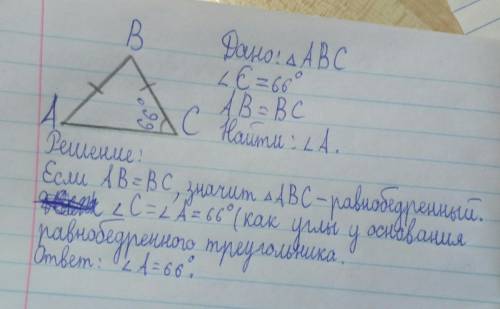 B
A
C
66°
Дано: △ABC
∠C=66°
AB=BC
Найти: ∠A.
Решение:
Если AB=BC, значит △ABC-равнобедренный.
∠C=∠A=66° (как углы у основания
равнобедренного треугольника.
Ответ: ∠A=66°.